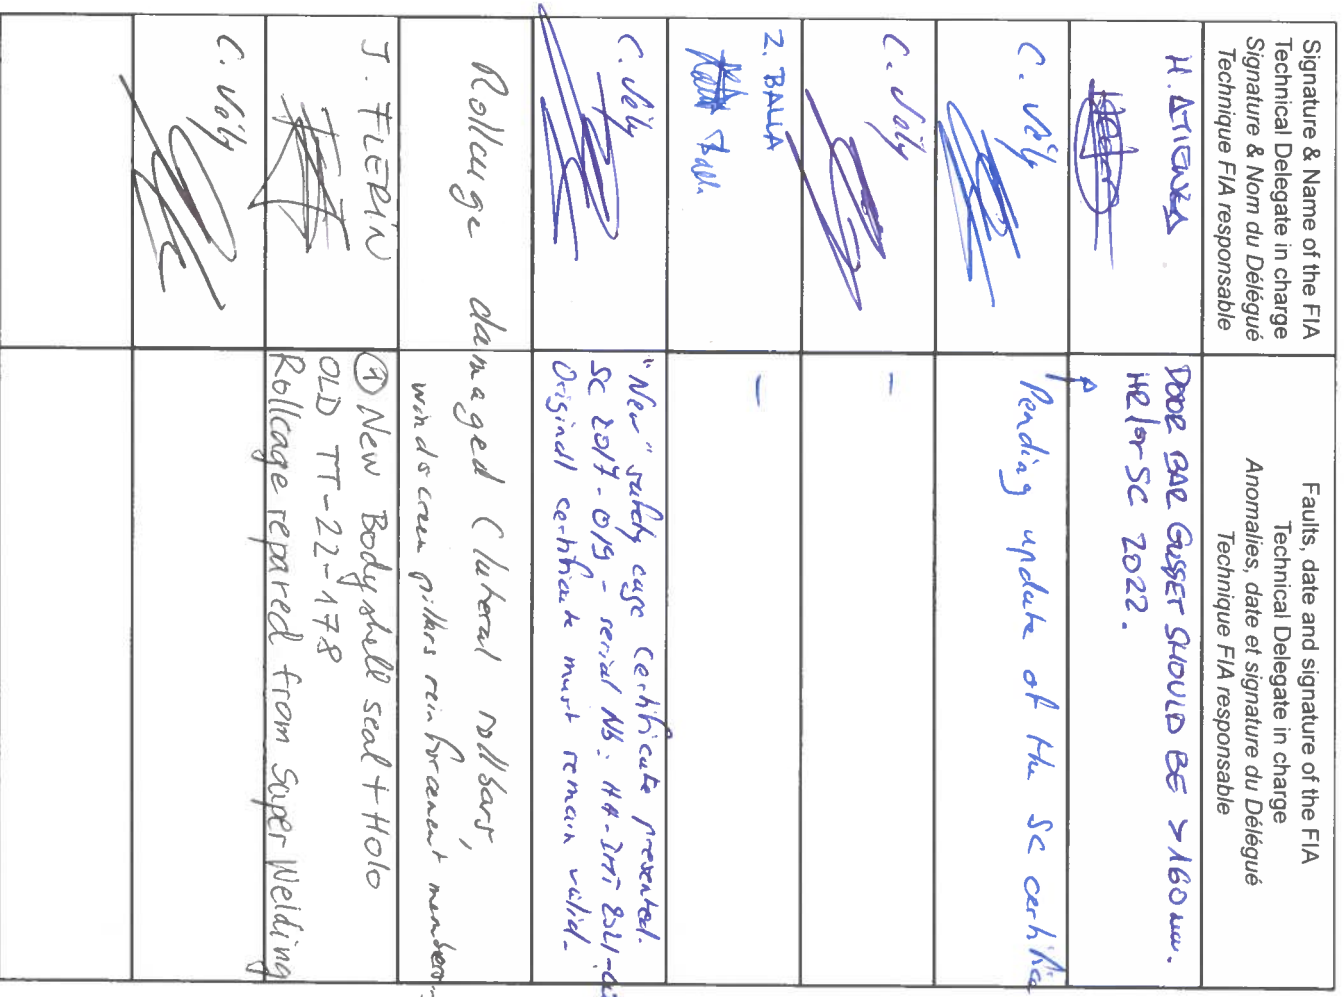 Signature & Name of the FIA
Technical Delegate in charge
Signature & Nom du Délégué
Technique FIA responsable
Faults, date and signature of the FIA
Technical Delegate in charge
Anomalies, date et signature du Délégué
Technique FIA responsable
H.
DOOR BAR GUSSET SHOULD BE >160mm.
HR/or SC 2022.
C. Vély
Pending update of the SC certifica
C. Vély
-
Z. BALLA
-
C. Vély
"New" safety cage certificate presented.
SC 2017-019 - serial Nb:
Original certificate must remain valid-
Rollcage damaged (lateral rollbars,
windscreen pillars reinforcement members
J. FLERIN
① New Bodyshell seal + Holo
OLD TT-22-178
Rollcage repared from Super Welding
C. Vély